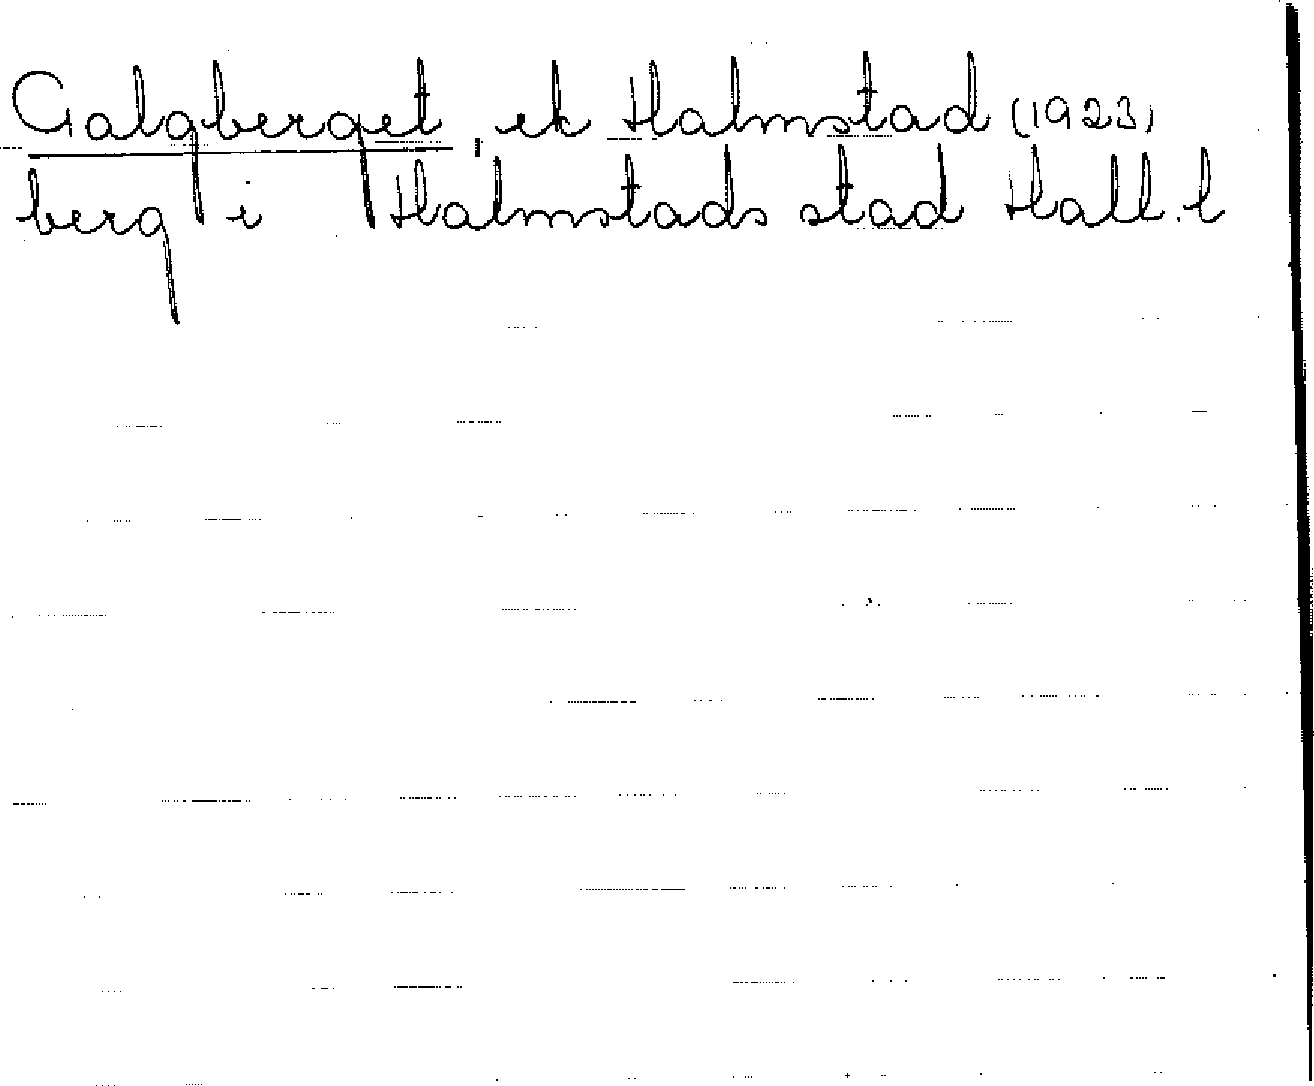 Galgberget, ek Halmstad (1923)
berg i Halmstads stad Hall. l